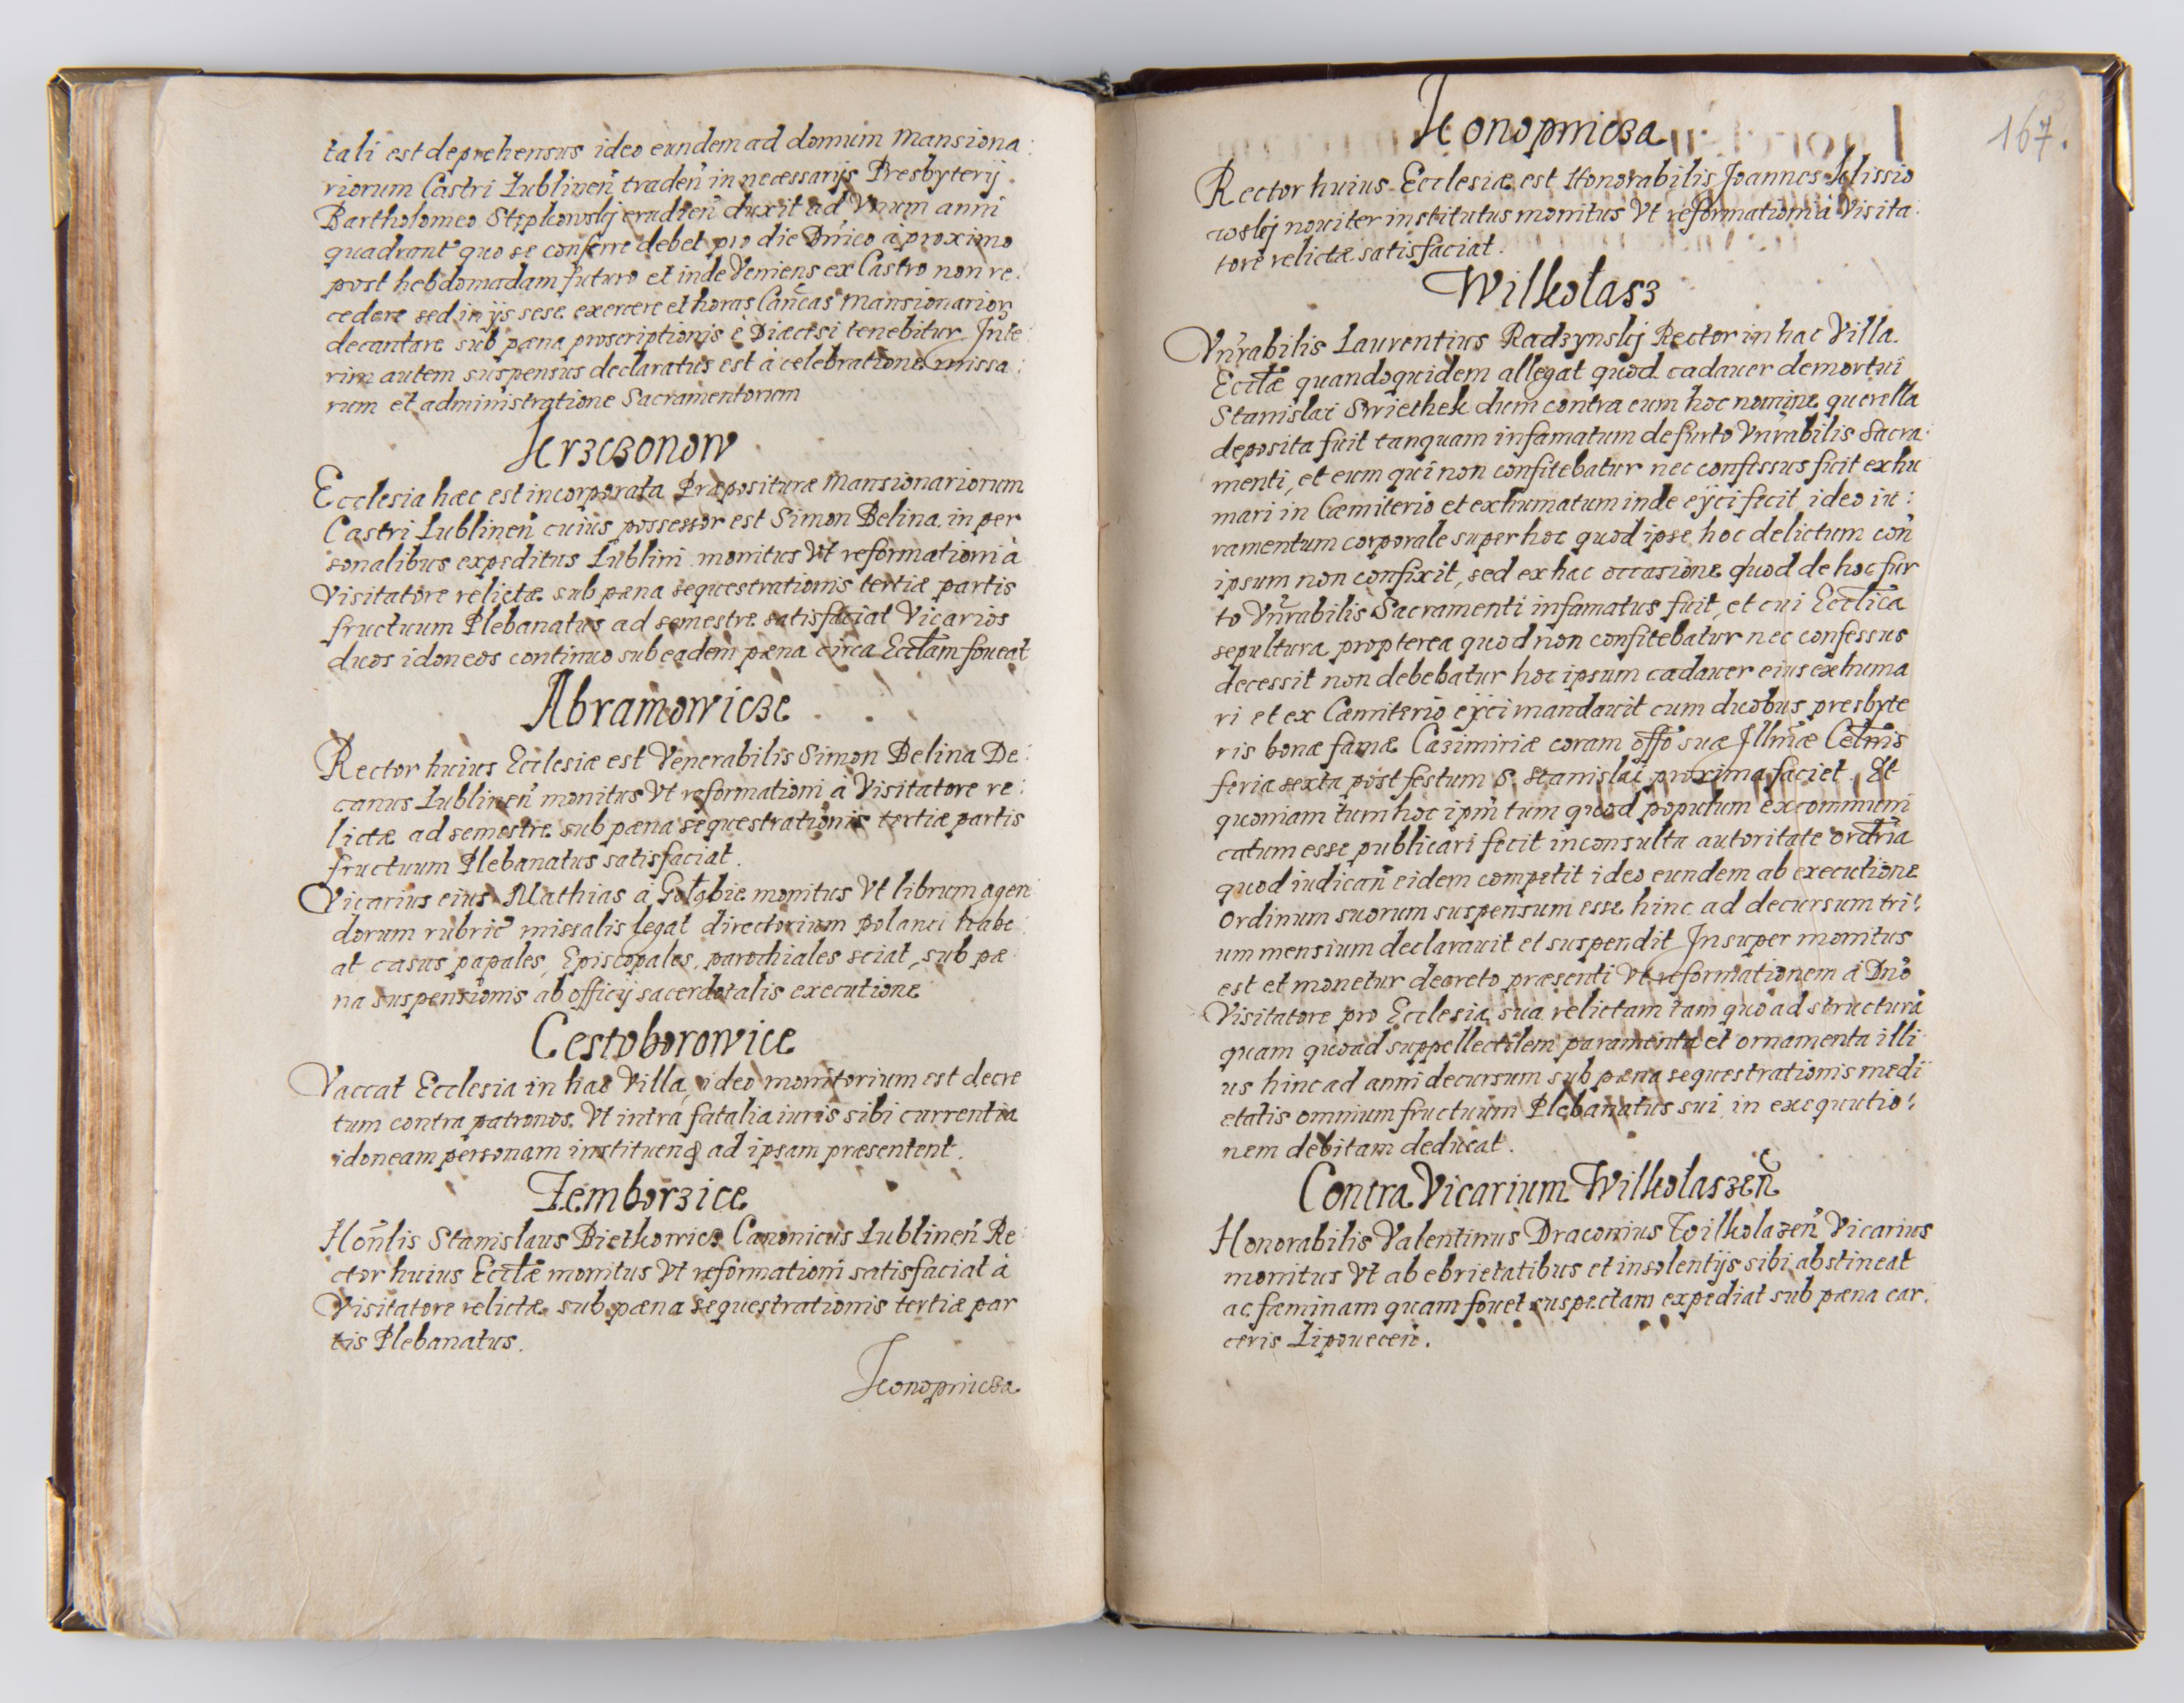 tali est deprehensus ideo eundem ad domum Mansiona:
riorum Castri Lublineñ tradeñ in necessarijs Presbyterij
Bartholomeo Stepkowskj erudieñ duxit ad Vnum anni
quadrant quo se conferre debet pro die Dnico à proximo
post hebdomadam futuro et inde Veniens ex Castro non re:
cedere sed in ijs sese exercere et horas Canĉas Mansionarior
decantare sub pæna proscriptionis è Diæcesi tenebitur Inte:
rim autem suspensus declaratus est à celebratione missa:
rum et administratione Sacramentorum
Krzczonow
Ecclesia hæc est incorporata Præposituræ Mansionariorum
Castri Lublineñ cuius possessor est Simon Belina in per
sonalibus expeditus Lublini monitus Vt reformationi à
Visitatore relictæ sub pæna sequestrationis tertiæ partis
fructuum Plebanatus ad semestre satisfaciat Vicarios
duos idoneos continuo sub eadem pæna circa Ecctam foueat
Abramowicze
Rector huius Ecclesiæ est Venerabilis Simon Belina De:
canus Lublineñ monitus Vt reformationi à Visitatore re:
lictæ ad semestre sub pæna sequestrationis tertiæ partis
fructuum Plebanatus satisfaciat.
Vicarius eius Mathias à Gołąbie monitus Vt librum agen
dorum rubric missalis legat directorium polanci habe:
at casus papales, Episcopales, parochiales sciat, sub pæ:
na suspensionis ab officij sacerdotalis executione
Cestoborowice
Vaccat Ecclesia in hac Villa, ideo monitorium est decre
tum contra patronos Vt intra fatalia iuris sibi currentia
idoneam personam instituend ad ipsam præsentent.
Zemborzice
Hoñlis Stanislaus Bietkowicz Canonicus Lublineñ Re
ctor huius Ecctæ monitus Vt reformationi satisfaciat à
Visitatore relictæ sub pæna sequestrationis tertiæ par
tis Plebanatus.
Konopnicza
167.
Konopnicza
Rector huius Ecclesiæ est Honorabilis Joannes Klisso
wskj nouiter institutus monitus Vt reformationi à Visita:
tore relictæ satisfaciat.
Wilkołasz
Vnrabilis Laurentius Radzynskj Rector in hac Villa.
Ecctæ quandoquidem allegat quod cadauer demortui
Stanislai Swiethek dum contra eum hoc nomine querella
deposita fuit tanquam infamatum de furto Vnrabilis Sacra:
menti, et eum qui non confitebatur nec confessus fuit exhu
mari in Cæmiterio et exhumatum inde eijci fecit ideo iu:
ramentum corporale super hoc quod ipse hoc delictum con
ipsum non confixit, sed ex hac occasione quod de hoc fur
to Vnrabilis Sacramenti infamatus fuit, et cui Ecctica
sepultura propterea quod non confitebatur nec confessus
decessit non debebatur hoc ipsum cadauer eius exhuma
ri et ex Cæmiterio eijci mandauit cum duobus presbyte
ris bonæ famæ Casimiriæ coram offo suæ Illmæ Celnis
feria sexta post festum S. Stanislai proxima faciet. Et
quoniam tum hoc ipm tum quod populum excommuni
catum esse publicari fecit inconsulta autoritate ordria
quod iudicañ eidem competit ideo eundem ab executione
Ordinum suorum suspensum esse hinc ad decursum tri:
um mensium declarauit et suspendit Insuper monitus
est et monetur decreto præsenti Vt reformationem à Dno
Visitatore pro Ecclesia sua relictam tam quoad structurā
quam quoad suppellectilem paramenta et ornamenta illi
us hinc ad anni decursum sub pæna sequestrationis medi
etatis omnium fructuum Plebanatus sui, in exequutio:
nem debitam deducat.
Contra Vicarium Wilkołaszeñ
Honorabilis Valentinus Draconius Wilkolazeñ Vicarius
monitus Vt ab ebrietatibus et insolentijs sibi abstineat
ac fæminam quam fouet suspectam expediat sub pæna car:
ceris Lipoueceñ.